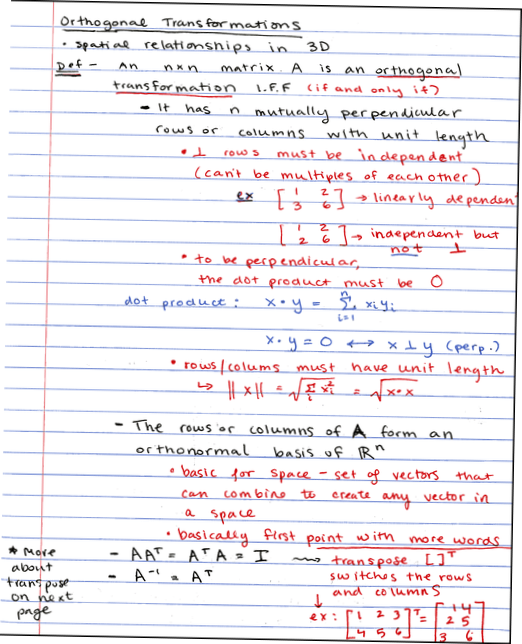 Orthogonal Transformations
• spatial relationships in 3D
Def - An nxn matrix A is an orthogonal
transformation I.F.F (if and only if)
- It has n mutually perpendicular
rows or columns with unit length
• ⊥ rows must be independent
(can't be multiples of each other)
ex [1 2
3 6] → linearly dependen
[1 2
2 6] → independent but
not ⊥
• to be perpendicular,
the dot product must be 0
dot product: x • y = Σ xiyi
n
i=1
x • y = 0 ↔ x ⊥ y (perp.)
• rows/colums must have unit length
↳ ||x|| = √Σi xi² = √x•x
- The rows or columns of A form an
orthonormal basis of ℝⁿ
• basic for space - set of vectors that
can combine to create any vector in
a space
• basically first point with more words
- AAᵀ = AᵀA = I ⟿ transpose [ ]ᵀ
- A⁻¹ = Aᵀ switches the rows
and columns
↓
ex: [1 2 3
4 5 6]ᵀ = [1 4
2 5
3 6
* More
about
transpose
on next
page